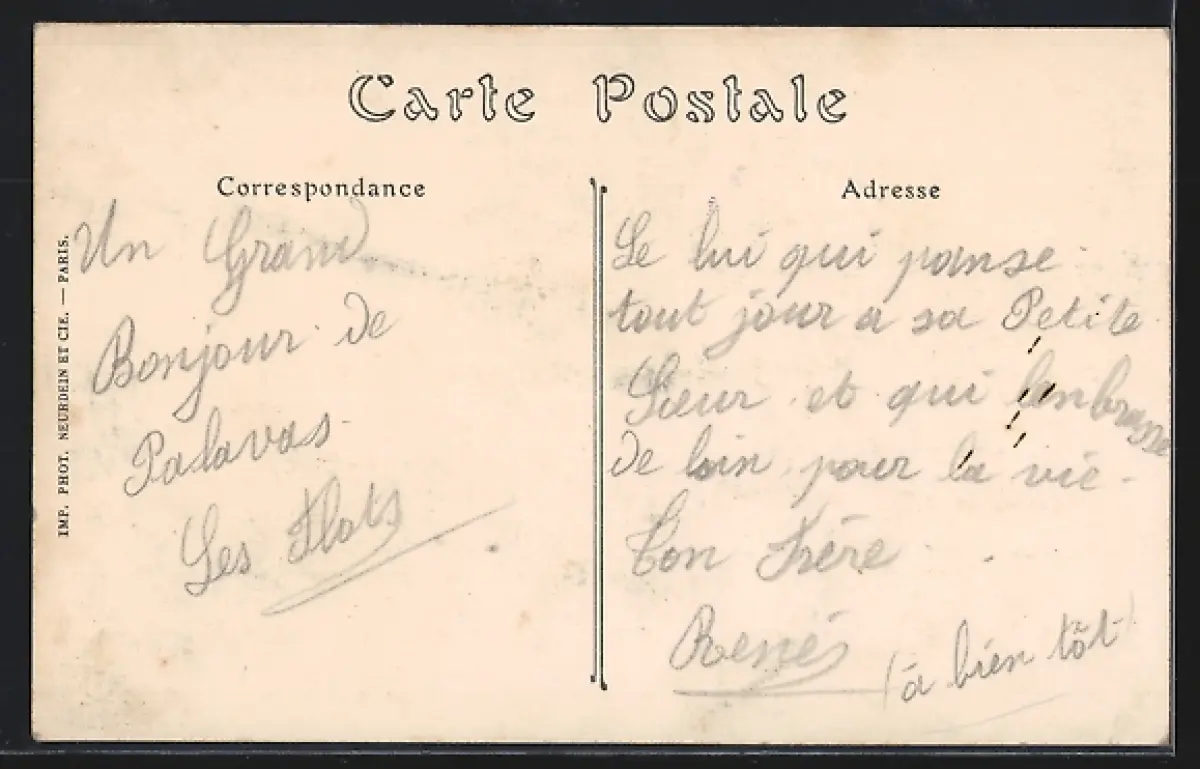 Carte Postale
Correspondance
Un Grand
Bonjour de
Palavas
Les Flots
Adresse
Se lui qui panse
tout jour a sa Petite
Sœur et qui lenbrasse
de loin pour la vie.
Ton Frère
Renés
(à bien tôt)
IMP. PHOT. NEURDEIN ET CIE. — PARIS.